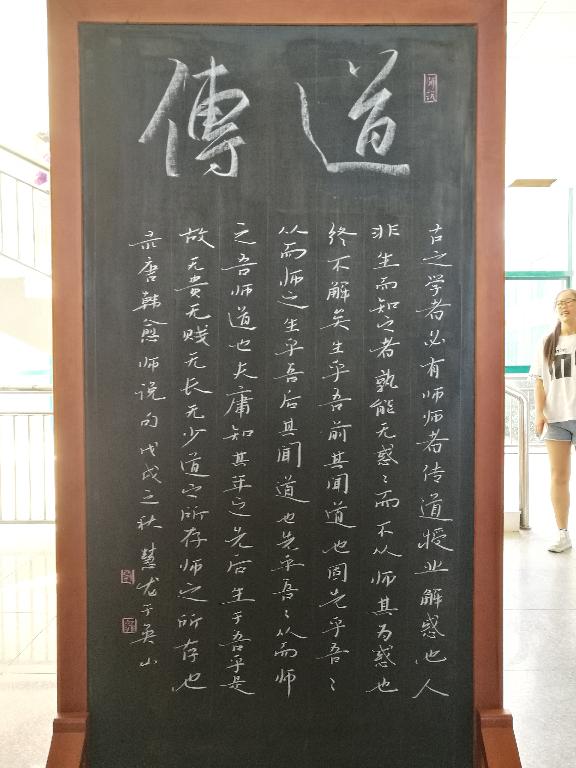 道傳
古之学者必有师师者传道授业解惑也人
非生而知之者孰能无惑〻而不从师其为惑也
终不解矣生乎吾前其聞道也固先乎吾〻
从而师之生乎吾后其聞道也先乎吾〻从而师
之吾师道也夫庸知其年之先后生于吾乎是
故无貴无贱无长无少道之所存师之所存也
录唐韩愈师说句戊戌之秋慧龙于英山